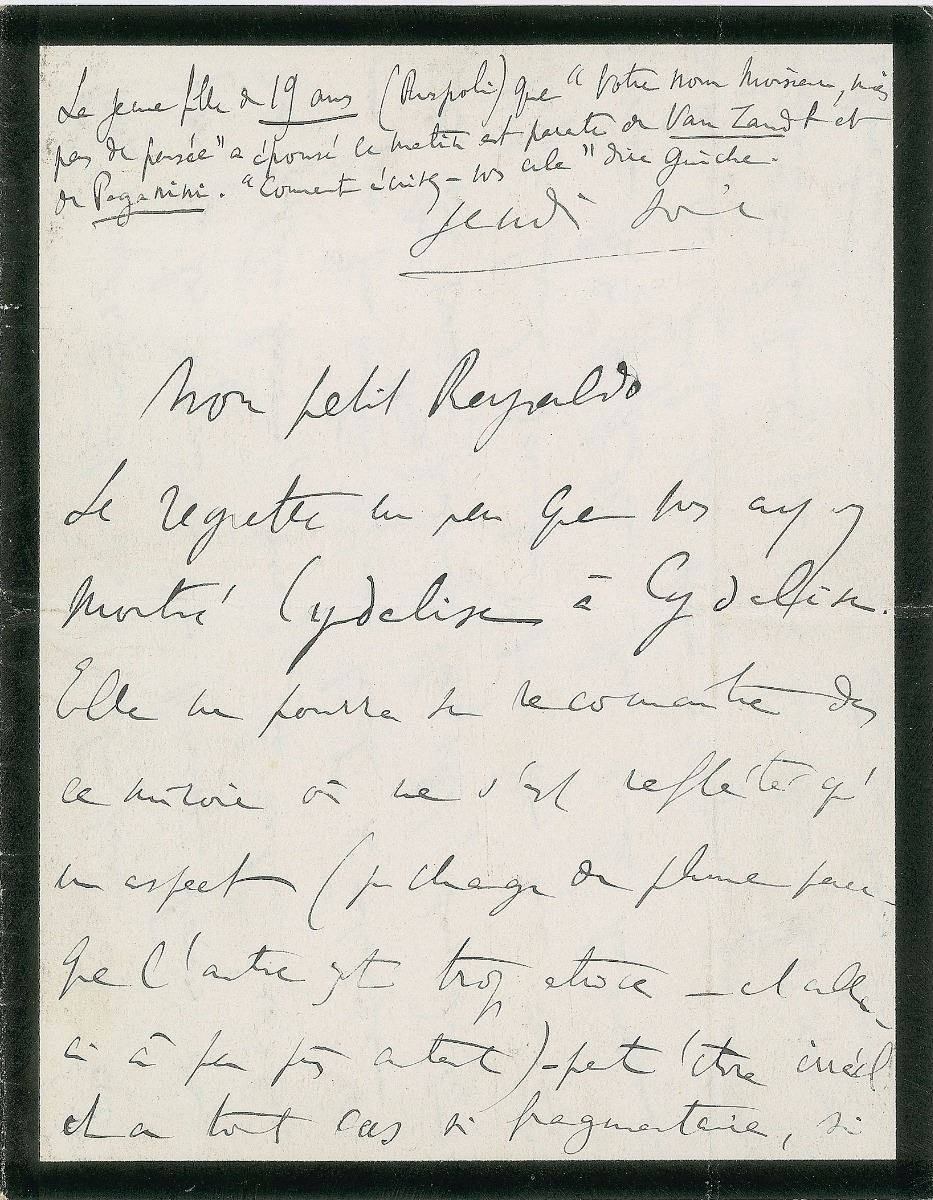 La jeune fille de 19 ans (Ruspoli) que "Votre nom Monsieur, mais
pas de pensée" a épousé ce matin est parente de Van Zandt et
de Paganini. "Coment écrivez-vos cela" dira Guiche.
Jeudi soir
Mon petit Reynaldo
Je regrette un peu que vos ayez
montré Cydalise à Cydalise.
Elle ne pourra se reconnaître ds
ce miroir où ne s'est reflété qu'
un aspect (je change de plume parce
que l'autre est trop atroce - et celle
ci à peu près autant) - peut'être irréel
et en tout cas si fragmentaire, si